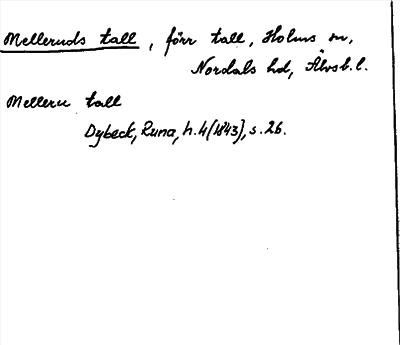 Melleruds tall, förr tall, Holms sn,
Nordals hd, Älvsb. l.
Melleru tall
Dybeck, Runa, h. 4 (1843), s. 26.